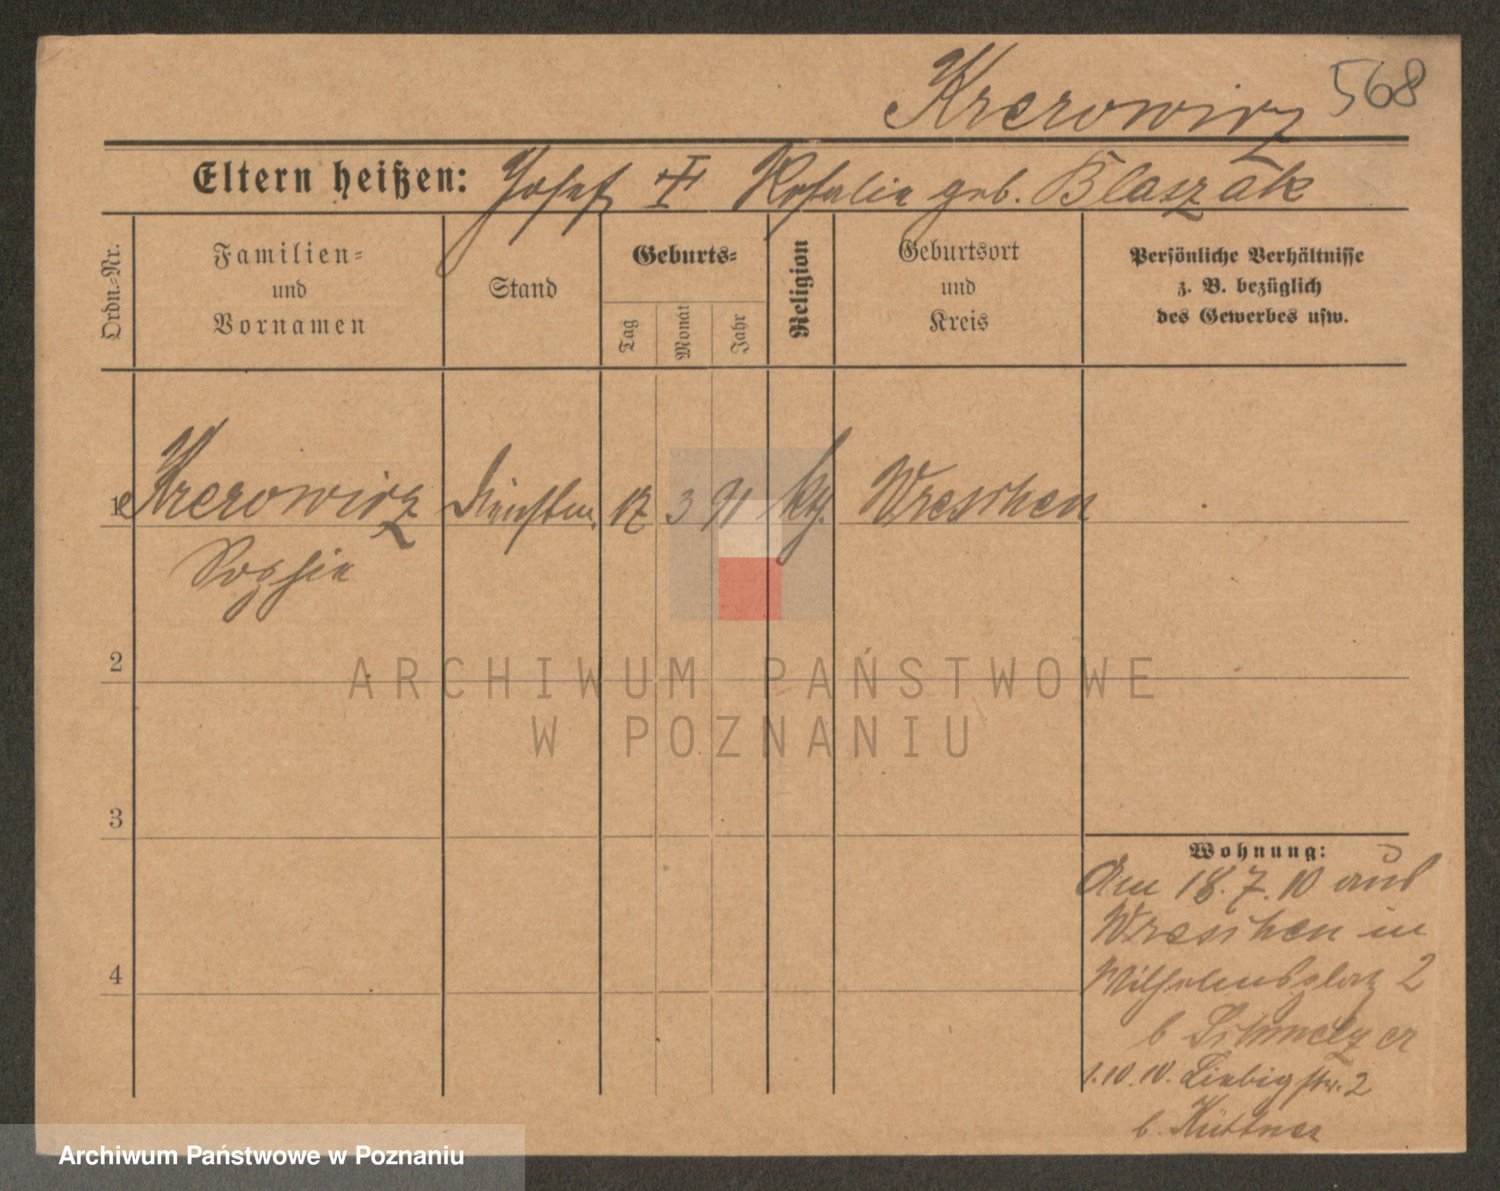 568
Krerowicz
Eltern heißen: Josef Rosalie geb. Błaszak
Ordn.-Nr.
Familien=
und
Vornamen
Stand
Geburts=
Tag
Monat
Jahr
Religion
Geburtsort
und
Kreis
Persönliche Verhältnisse
z. B. bezüglich
des Gewerbes usw.
1 Krerowicz Dienstm. 17 3 91 kth. Wreschen
Sophie
2
3
4
Wohnung:
Am 18.7.10 aus
Wreschen in
Wilhelmsplatz 2
b Schmelzer
1.10.10. Liebigstr. 2
b. Hüttner
ARCHIWUM PAŃSTWOWE
W POZNANIU
Archiwum Państwowe w Poznaniu